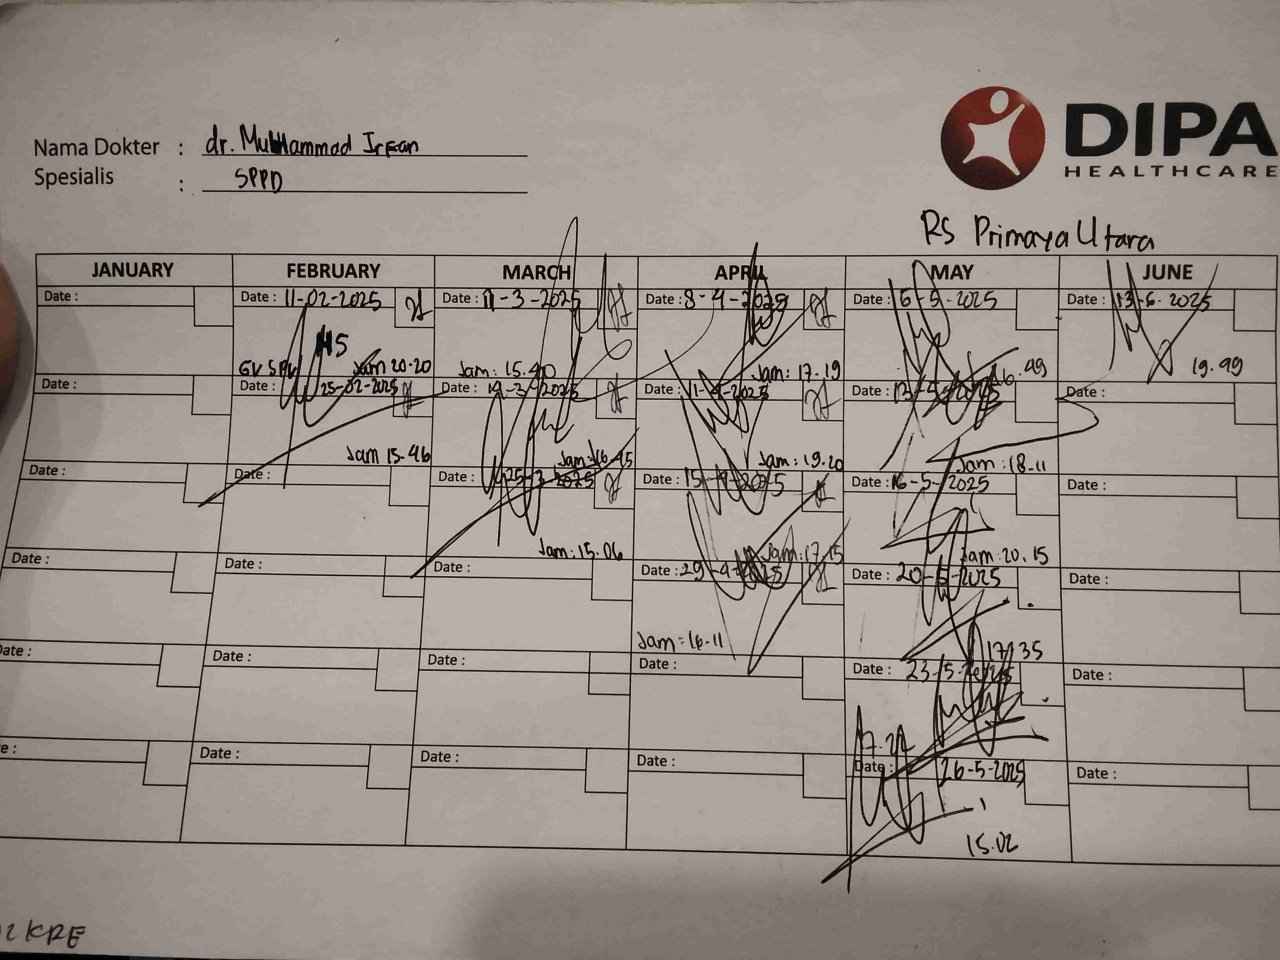 DIPA
HEALTHCARE
Nama Dokter : dr. Muhammad Irfan
Spesialis : SPPD
RS Primaya Utara
JANUARY FEBRUARY MARCH APRIL MAY JUNE
Date : Date : 11-02-2025 Date : 11-3-2025 Date : 8-4-2025 Date : 6-5-2025 Date : 13-6-2025
MS
GV SPV Jam 20.20 Jam: 15.40 Jam: 17.19 16.49 19.49
Date : Date : 25-02-2025 Date : 19-3-2025 Date : 11-4-2025 Date : 13-5-2025 Date :
Jam 15-46 Jam: 16.45 Jam: 19.20 Jam: 18-11
Date : Date : Date : 25-3-2025 Date : 15-4-2025 Date : 16-5-2025 Date :
Jam: 15.06 Jam: 17.15 Jam: 20.15
Date : Date : Date : Date : 29-4-2025 Date : 20-5-2025 Date :
Jam = 16-11 17.35
Date : Date : Date : Date : Date : 23-5-2025 Date :
Date : Date : Date : Date : 26-5-2025 Date :
15.02
KRE